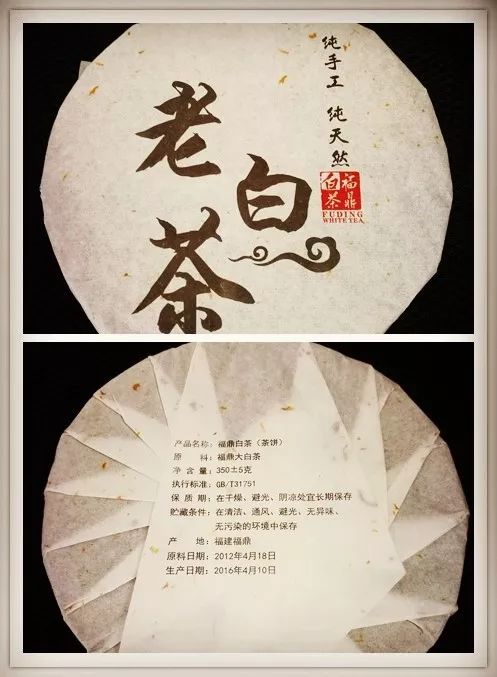 老白茶
纯手工 纯天然
福鼎
白茶
FUDING
WHITE TEA
产品名称：福鼎白茶（茶饼）
原 料：福鼎大白茶
净 含 量：350±5克
执行标准：GB/T31751
保 质 期：在干燥、避光、阴凉处宜长期保存
贮藏条件：在清洁、通风、避光、无异味、
无污染的环境中保存
产 地：福建福鼎
原料日期：2012年4月18日
生产日期：2016年4月10日